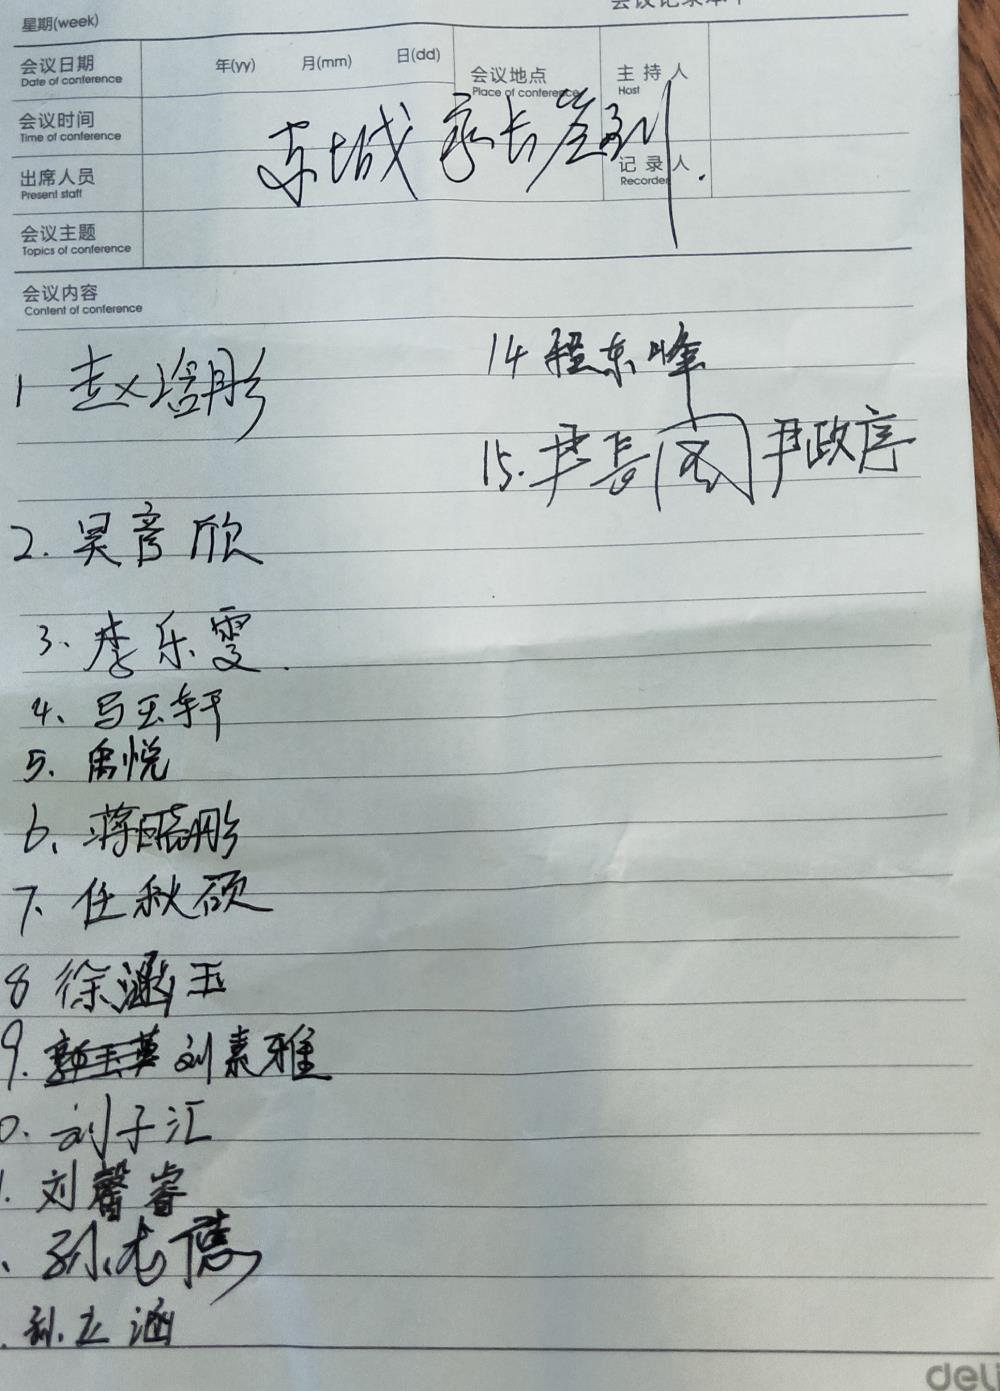 会议记录本
星期(week)
会议日期 年(yy) 月(mm) 日(dd) 会议地点 主持人
Date of conference Place of conference Host
会议时间
Time of conference
东城家长签到
出席人员 记录人
Present staff Recorder
会议主题
Topics of conference
会议内容
Content of conference
1 赵培彤
14 程东峰
15. 尹长阁 尹政序
2. 吴彦欣
3、李乐雯.
4、马玉轩
5、禹悦
6、蒋晓彤
7、任秋硕
8 徐涵玉
9. 刘素雅
0. 刘子汇
1. 刘馨睿
、孙光德
. 孙立涵
deli